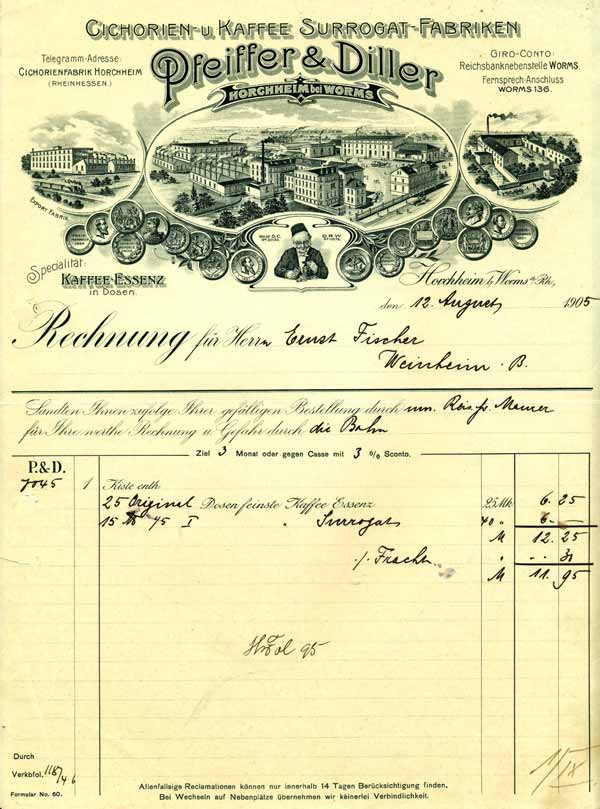 CICHORIEN- u. KAFFEE SURROGAT-FABRIKEN
Pfeiffer & Diller
HORCHHEIM bei WORMS
Telegramm-Adresse:
CICHORIENFABRIK HORCHHEIM
(RHEINHESSEN.)
GIRO-CONTO:
Reichsbanknebenstelle WORMS.
Fernsprech-Anschluss
WORMS 136.
EXPORT FABRIK
Specialität:
KAFFEE-ESSENZ
in DOSEN.
Horchheim b/ Worms a/Rh.,
den 12. August 1905
Rechnung für Herrn Ernst Fischer
Weinheim . B.
Sandten Ihnen zufolge Ihrer gefälligen Bestellung durch uns. Reis. H. Maurer
für Ihre werthe Rechnung u. Gefahr durch die Bahn
Ziel 3 Monat oder gegen Casse mit 3 % Sconto.
P. & D.
7045 1 Kiste enth.
25 Original Dosen feinste Kaffee Essenz 25 Mk. 6. 25
15 45 I " Surrogat 40 " 6. —
M 12. 25
./. Fracht " . . 30
M 11. 95
95
Durch
Verkbfol. 118/46
Formular No. 60.
Allenfallsige Reclamationen können nur innerhalb 14 Tagen Berücksichtigung finden.
Bei Wechseln auf Nebenplätze übernehmen wir keinerlei Verbindlichkeit.
1/IX